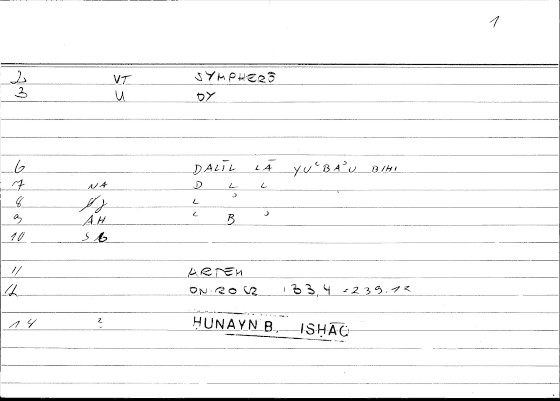 1
2 VT SYMPHERŌ
3 U OY
6 DALĪL LĀ YUʿBAʾU BIHI
7 NA D L L
8 L ʾ
9 AH ʿ B ʾ
10
11 ARTEM
12 ON.ROCR 133,4 = 239.12
14 2 HUNAYN B. ISHĀQ